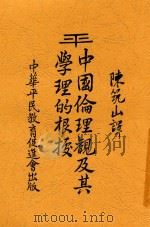 陳筑山
平
中國倫理觀及其
學理的根據
中華平民教育促進會出版